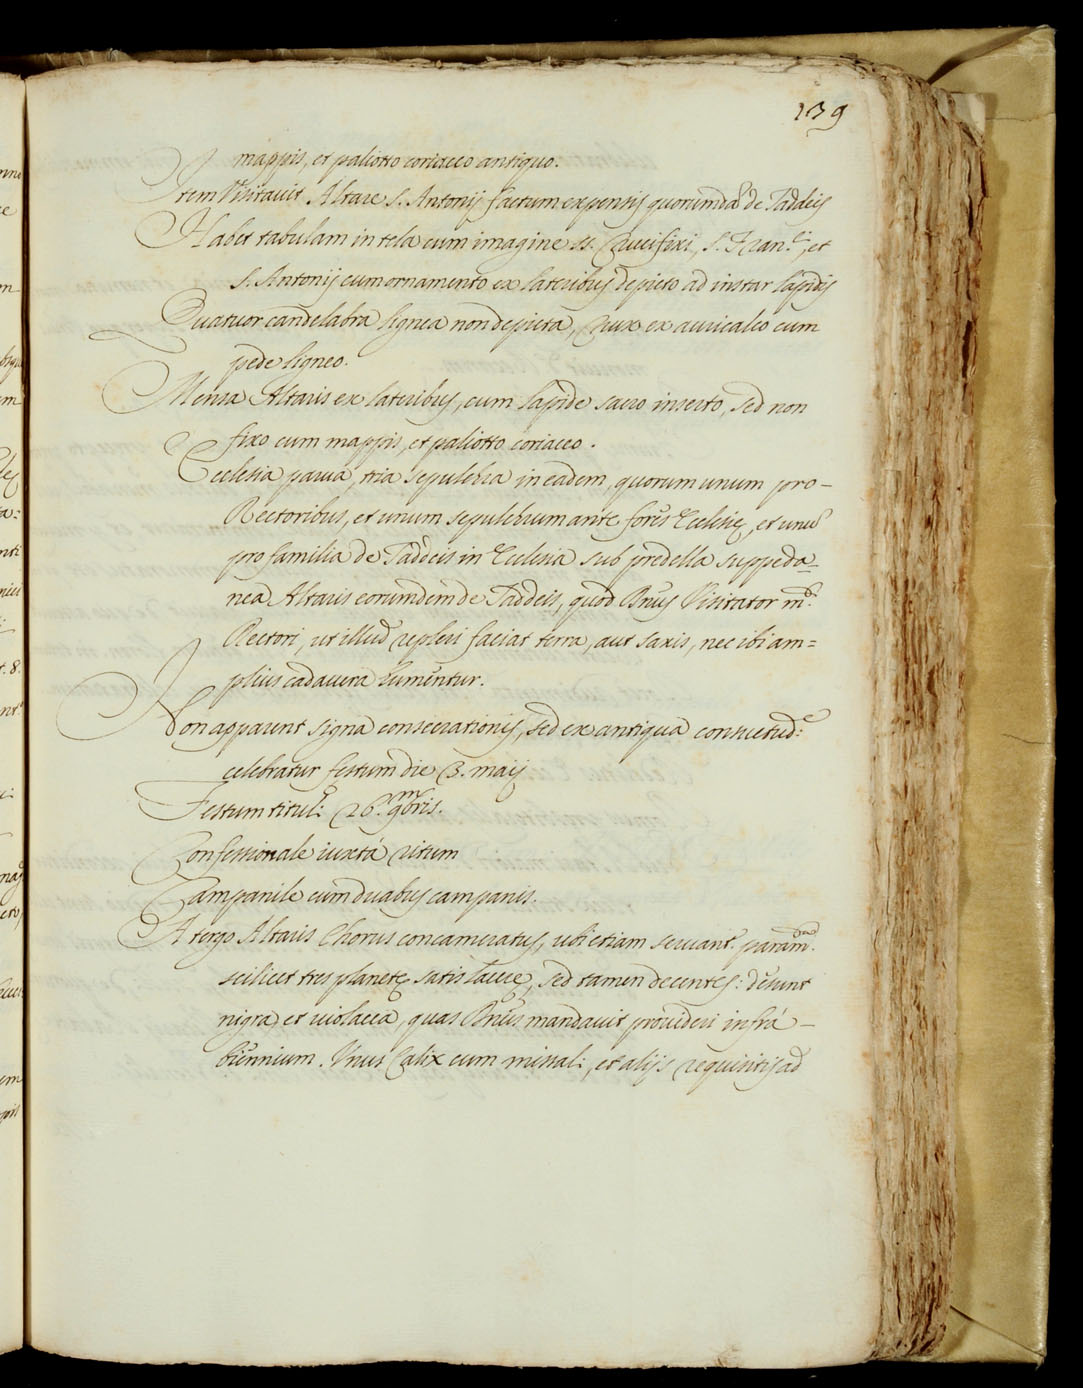 139
mappis, et paliotto coriaceo antiquo.
Item Visitauit Altare S. Antonij factum expensis quorumdã de Taddeis
Habet tabulam in tela cum imagine SS. Crucifixi, S. Fran.ci, et
S. Antonij cum ornamento ex lateribus depicto ad instar lapidis
Quatuor candelabra lignea non depicta, Crux ex auricalco cum
pede ligneo.
Mensa Altaris ex lateribus, cum lapide sacro inserto, sed non
fixo cum mappis, et paliotto coriaceo.
Ecclesia parua, tria sepulchra in eadem, quorum unum pro-
Rectoribus, et unum sepulchrum ante fores Ecclesię, et unũ
pro familia de Taddeis in Ecclesia sub predella suppeda-
nea Altaris eorumdem de Taddeis, quod Ill̃mus Visitator m.t
Rectori, ut illud repleri faciat terra, aut saxis, nec ibi am=
plius cadauera humentur.
Non apparent signa consecrationis, sed ex antiqua consuetud:e
celebratur festum die 3. maij
Festum titul: 26. 9mbris.
Confessionale iuxta ritum
Campanile cum duabus campanis.
A tergo Altaris Chorus concameratus, ubi etiam seruant.r param.ta
scilicet tres planetę satis lacerę, sed tamen decentes: desunt
nigra, et uiolacea, quas mandauit prouideri infrà -
biennium. Vnus Calix cum missali, et alijs requisitis ad
nni
ce
m
m
nti
t. 8.
nt.
em